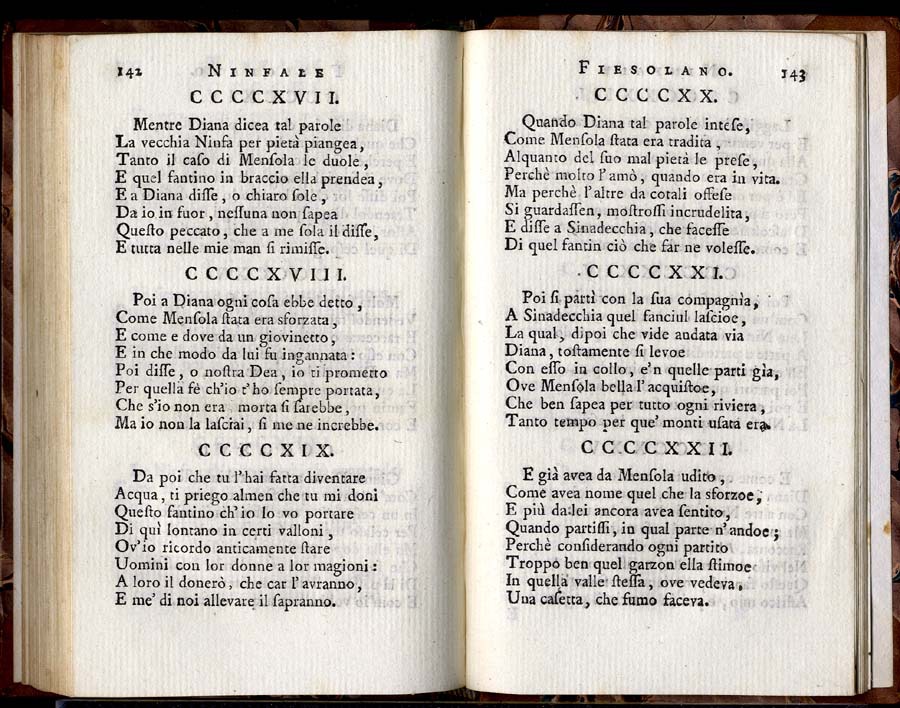 142 NINFALE
CCCCXVII.
Mentre Diana dicea tal parole
La vecchia Ninfa per pietà piangea,
Tanto il caſo di Menſola le duole,
E quel fantino in braccio ella prendea,
E a Diana diſſe, o chiaro ſole,
Da io in fuor, neſſuna non ſapea
Queſto peccato, che a me ſola il diſſe,
E tutta nelle mie man ſi rimiſſe.
CCCCXVIII.
Poi a Diana ogni coſa ebbe detto,
Come Menſola ſtata era sforzata,
E come e dove da un giovinetto,
E in che modo da lui fu ingannata:
Poi diſſe, o noſtra Dea, io ti prometto
Per quella fè ch'io t'ho ſempre portata,
Che s'io non era, morta ſi ſarebbe,
Ma io non la laſciai, ſi me ne increbbe.
CCCCXIX.
Da poi che tu l'hai fatta diventare
Acqua, ti priego almen che tu mi doni
Queſto fantino ch'io lo vo portare
Di quì lontano in certi valloni,
Ov'io ricordo anticamente ſtare
Uomini con lor donne a lor magioni:
A loro il donerò, che car l'avranno,
E me' di noi allevare il ſapranno.
FIESOLANO. 143
CCCCXX.
Quando Diana tal parole intéſe,
Come Menſola ſtata era tradita,
Alquanto del ſuo mal pietà le preſe,
Perchè molto l'amò, quando era in vita.
Ma perchè l'altre da cotali offeſe
Si guardaſſen, moſtroſſi incrudelita,
E diſſe a Sinadecchia, che faceſſe
Di quel fantin ciò che far ne voleſſe.
CCCCXXI.
Poi ſi partì con la ſua compagnìa,
A Sinadecchia quel fanciul laſcioe,
La qual, dipoi che vide andata via
Diana, toſtamente ſi levoe
Con eſſo in collo, e'n quelle parti gìa,
Ove Menſola bella l'acquiſtoe,
Che ben ſapea per tutto ogni riviera,
Tanto tempo per que' monti uſata era.
CCCCXXII.
E già avea da Menſola udito,
Come avea nome quel che la sforzoe;
E più da lei ancora avea ſentito,
Quando partiſſi, in qual parte n'andoe;
Perchè conſiderando ogni partito
Troppo ben quel garzon ella ſtimoe
In quella valle ſteſſa, ove vedeva,
Una caſetta, che fumo faceva.